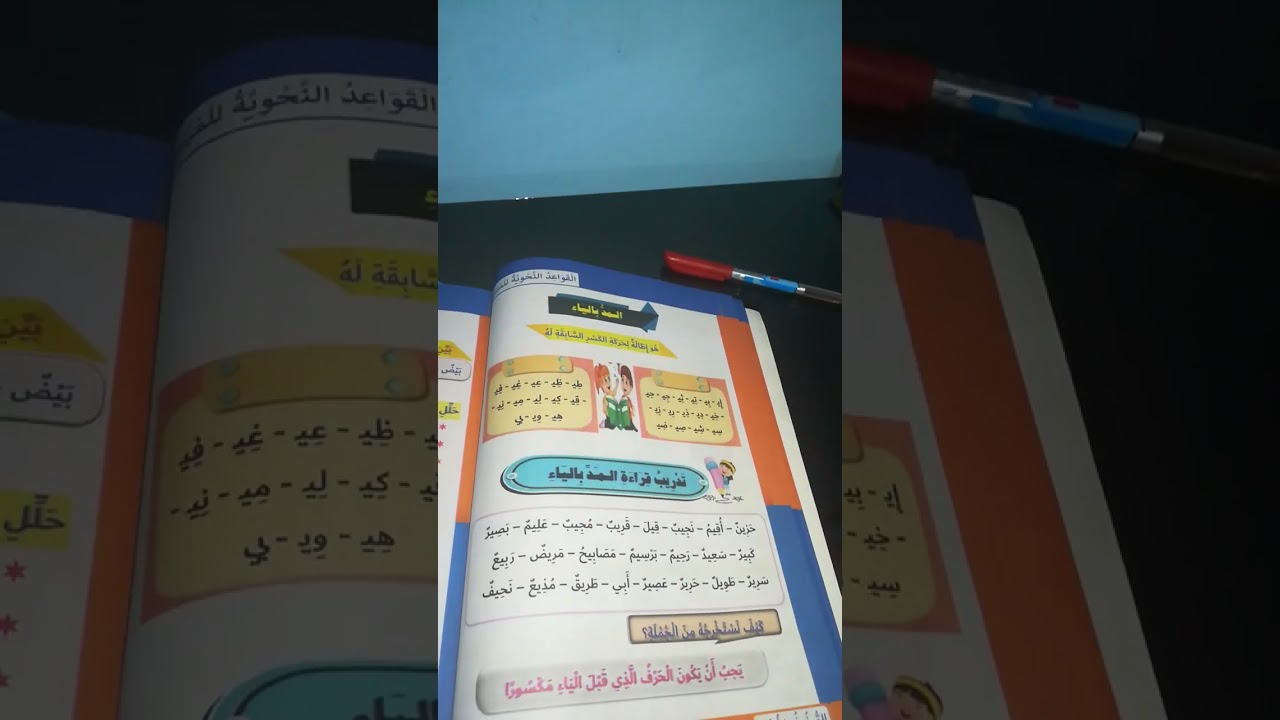 الْقَوَاعِدُ النَّحْوِيَّةُ
المدُّ بالياء
هُوَ إِطَالَةٌ لِحَرَكَةِ الكَسْرِ السَّابِقَةِ لَهُ
إِي - بِيـ - تِيـ - ثِيـ - جِيـ - حِيـ
- خِيـ - دِيـ - ذِيـ - رِيـ - زِيـ -
سِيـ - شِيـ - صِيـ - ضِيـ
طِيـ - ظِيـ - عِيـ - غِيـ - فِيـ
- قِيـ - كِيـ - لِيـ - مِيـ - نِيـ -
هِيـ - وِيـ - يِي
تَدْرِيبُ قِرَاءَةِ الـمَدِّ بِالْيَاءِ
حَزِينٌ - أُقِيمُ - نَجِيبٌ - قِيلَ - قَرِيبٌ - مُجِيبٌ - عَلِيمٌ - بَصِيرٌ
كَبِيرٌ - سَعِيدٌ - رَحِيمٌ - بَرْسِيمٌ - مَصَابِيحُ - مَرِيضٌ - رَبِيعٌ
سَرِيرٌ - طَوِيلٌ - حَرِيرٌ - عَصِيرٌ - أَبِي - طَرِيقٌ - مُذِيعٌ - نَحِيفٌ
كَيْفَ نَسْتَخْرِجُهُ مِنَ الْجُمْلَةِ؟
يَجِبُ أَنْ يَكُونَ الْحَرْفُ الَّذِي قَبْلَ الْيَاءِ مَكْسُورًا
بَيْضٌ